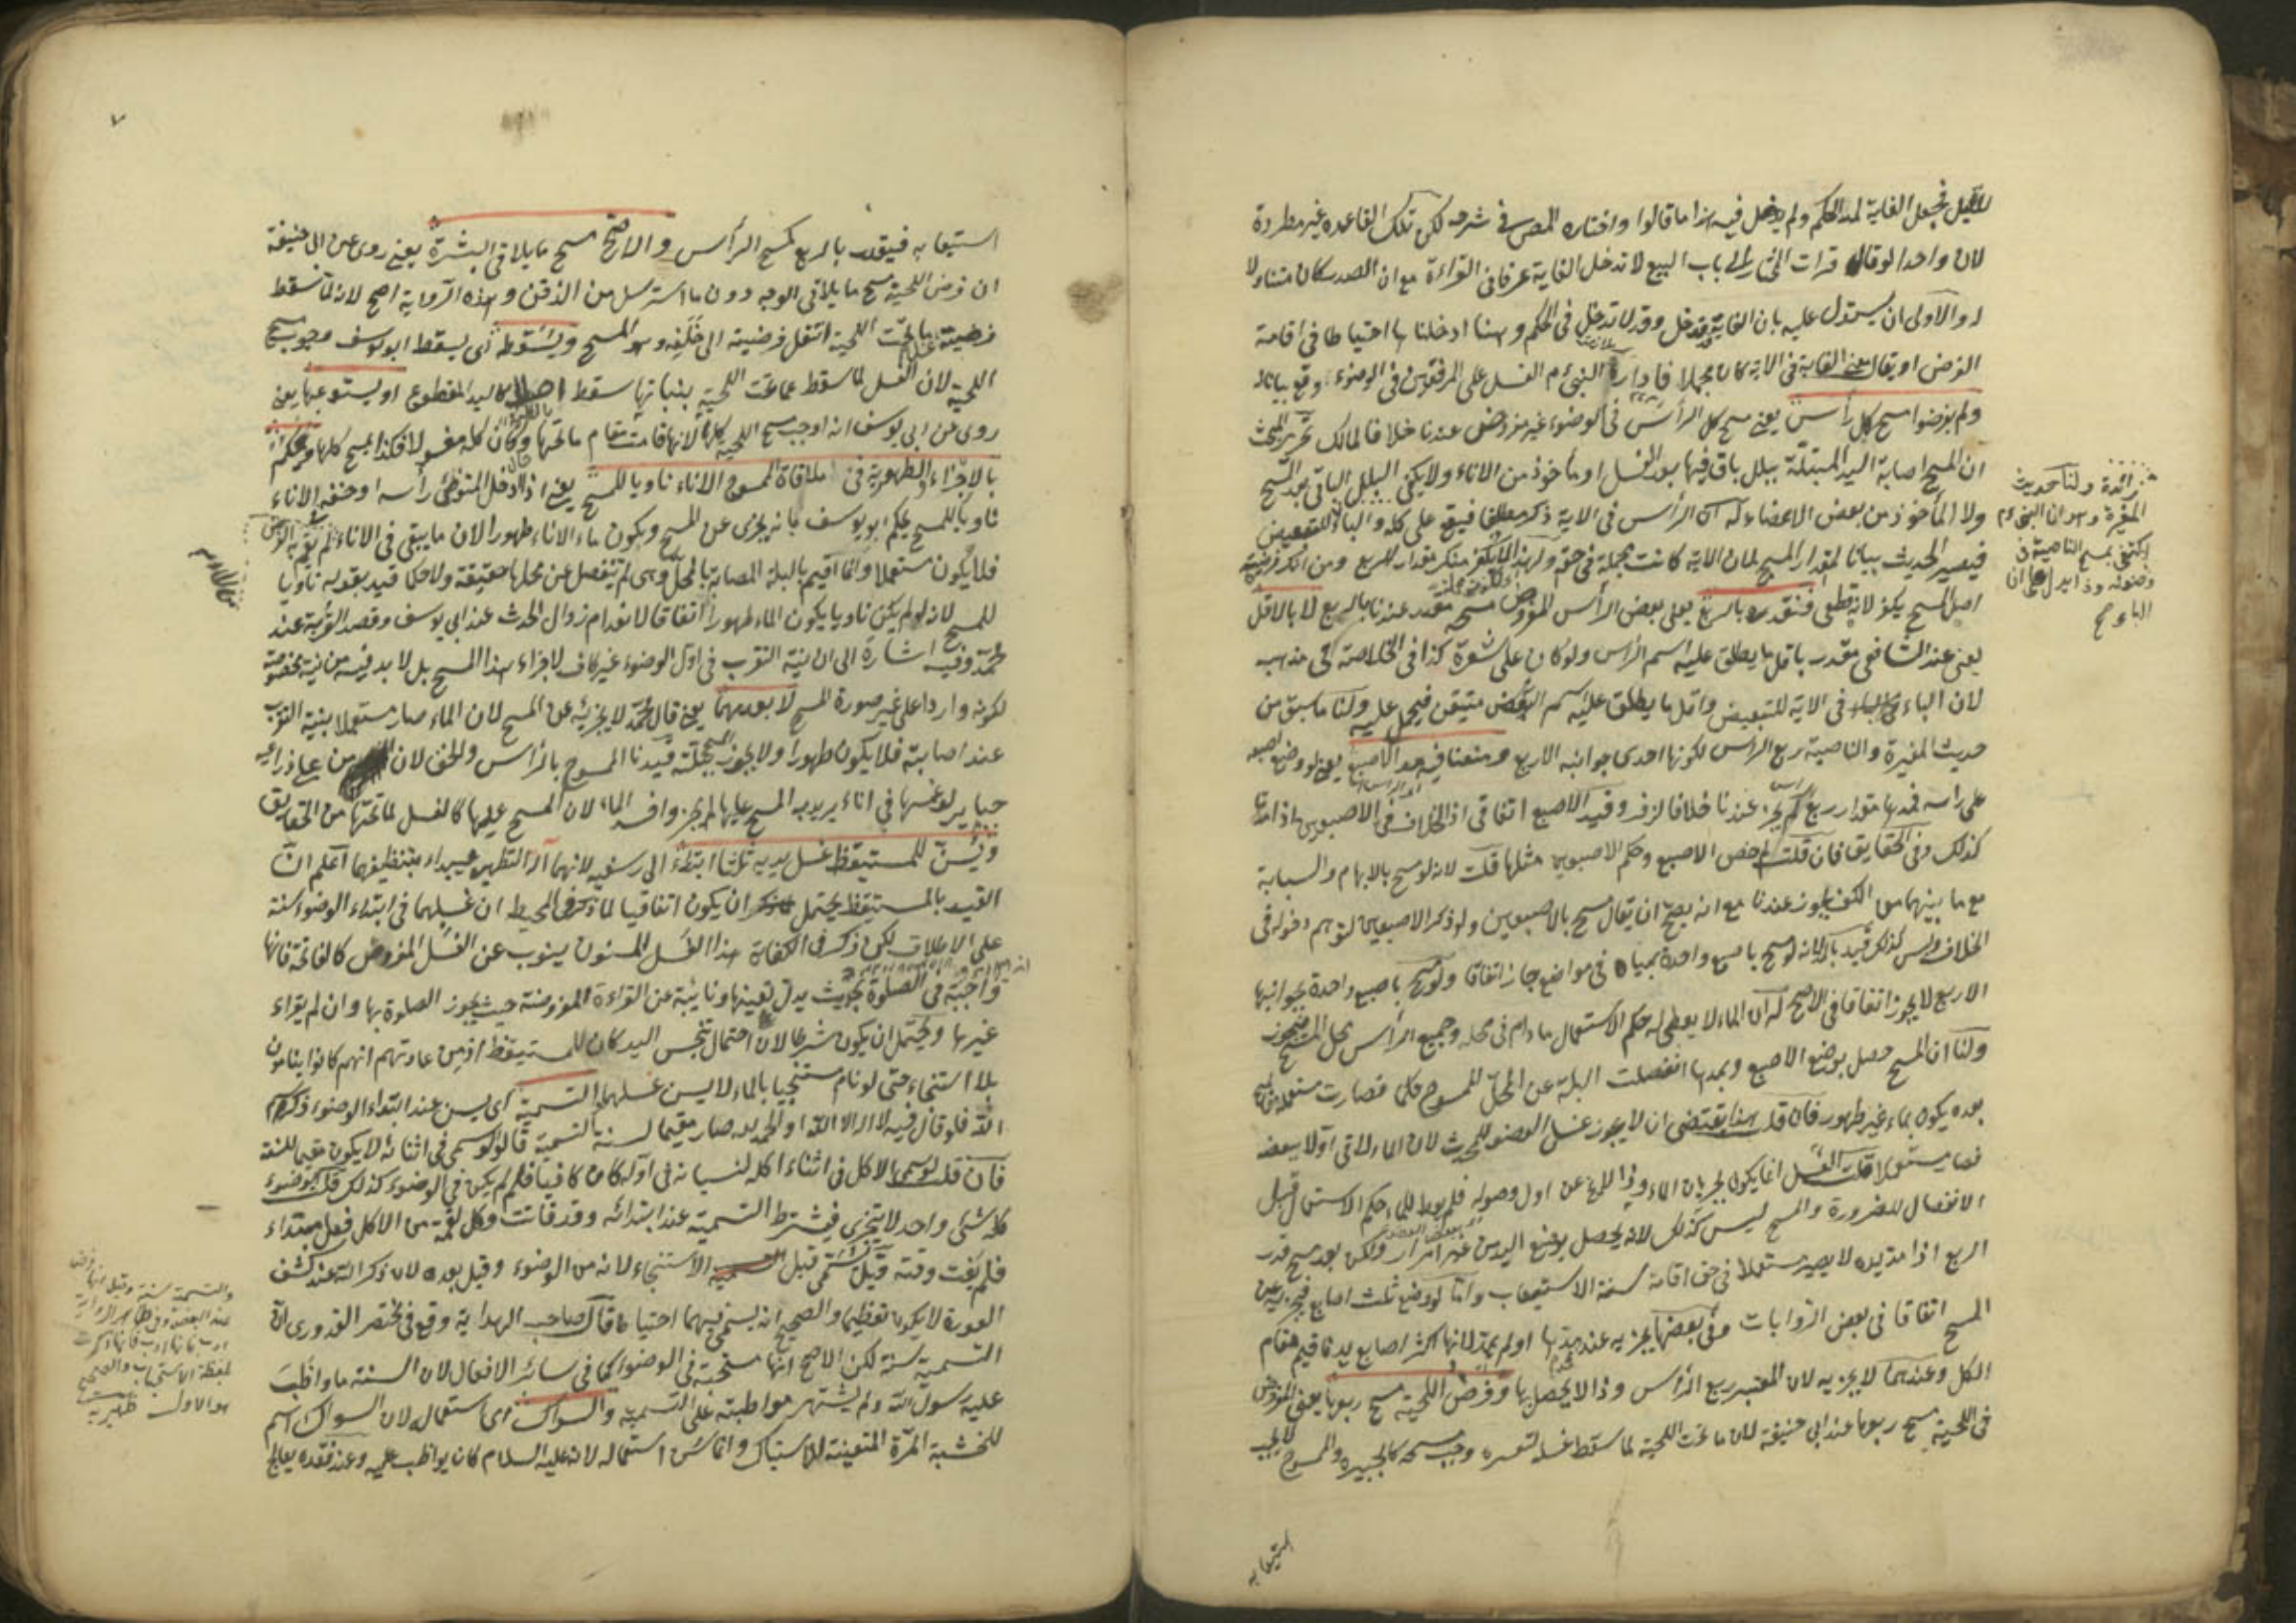 لليل فجعل الغاية لمد الحكم ولم يدخل فيه هذا ما قالوا واختاره المص في شرحه لكن تلك القاعدة غير مطردة
لان واحدا لو قال قرأت الى باب البيع لا تدخل الغاية عرفا في القراءة مع ان الصدر كان متناولا
له والاولى ان يستدل عليه بان الغاية قد تدخل وقد لا تدخل في الحكم وههنا ادخلناها احتياطا في اقامة
الفرض او يقال معنى الغاية في الاية كان مجملا فادارة النبي ءم الغسل على المرفقين في الوضوء وقع بيانا له
ولم يفرضوا مسح كل رأس يعني مسح كل الرأس في الوضوء غير مفروض عندنا خلافا لمالك تحرير المبحث
ان المسح اصابة اليد المبتلة ببلل باق فيها بعد الغسل او مأخوذ من الاناء ولا يكفي البلل الباقي بعد المسح
ولا المأخوذ من بعض الاعضاء له ان الرأس في الاية ذكر مطلقا فيقع على كله والباء للتبعيض
فيصير الحديث بيانا لمقدار المسح لان الاية كانت مجملة في حقه ولهذا لا يكفر منكر مقدار الربع ومن انكر فرضية
اصل المسح يكفر لانه قطعي فنقدره بالربع يعني بعض الرأس المفروض مسحه مقدر عندنا بالربع لا بالاقل
يعني عند الشافعي مقدر باقل ما يطلق عليه اسم الرأس ولو كان على شعرة كذا في الخلاصة في مذهبه
لان الباء في الاية للتبعيض واقل ما يطلق عليه اسم البعض متيقن فيحمل عليه ولنا ما سبق من
حديث المغيرة والناصية ربع الرأس لكونها احدى جوانبه الاربع ومنعنا فيه مد الاصبع يعني لو وضع اصبعه
على رأسه فمدها مقدار ربع لم يجز عندنا خلافا لزفر وقيد الاصبع اتفاقي اذ الخلاف في الاصبعين اذا مدتا
كذلك وفي الحقايق فان قلت لم خص الاصبع وحكم الاصبعين مثلها قلت لانه لو مسح بالابهام والسبابة
مع ما بينهما من الكف يجوز عندنا مع انه يصح ان يقال مسح بالاصبعين ولو ذكر الاصبعين لتوهم دخوله في
الخلاف وليس كذلك قيد بالمد لانه لو مسح باصبع واحدة بمياه في مواضع جاز اتفاقا ولو مسح باصبع واحدة بجوانبها
الاربع لا يجوز اتفاقا في الاصح له ان الماء لا يعطى له حكم الاستعمال ما دام في محله وجميع الرأس محل المسح فيجوز
ولنا ان المسح حصل بوضع الاصبع وبمدها انفصلت البلة عن المحل الممسوح حكما فصارت مستعملة فالمسح
بعده يكون بماء غير طهور فان قلت هذا يقتضي ان لا يجوز غسل العضو للمحدث لان الماء لاقى اولا بعضه
فصار مستعملا قلت الغسل انما يكون بجريان الماء وذا لا يقع عن اول وصوله فلم يعط للماء حكم الاستعمال قبل
الانفصال للضرورة والمسح ليس كذلك لانه يحصل بوضع اليد من غير امرار ولكن بعد مسح قدر
الربع اذا مد يده لا يصير مستعملا في حق اقامة سنة الاستيعاب واما لو وضع ثلث اصابع
المسح اتفاقا في بعض الروايات وفي بعضها يجزيه عند محمد مدها او لم يمد لانها اكثر اصابع يده فاقيم مقام
الكل وعندهما لا يجزيه لان المعتبر ربع الرأس وذا لا يحصل بها وفرض اللحية مسح ربعها يعني المفروض
في اللحية مسح ربعها عند ابي حنيفة لان ما تحت اللحية لما سقط غسله لتعسره وجب مسحه كالجبيرة والممسوح لا يجب
استيعابه
زائدة ولنا حديث
المغيرة وهو ان النبي ءم
اكتفى بمسح الناصية في
وضوئه وذا يدل على ان
الباء ح
٧
استيعابه فيقدر بالربع كمسح الرأس والاصح مسح ما يلاقي البشرة يعني روى عن ابي حنيفة
ان فرض اللحية مسح ما يلاقي الوجه دون ما استرسل من الذقن وهذه الرواية اصح لانه لما سقط
فرضية ما تحت اللحية انتقل فرضيته الى خلفه وهو المسح ويسقطه اى يسقط ابو يوسف وجوب مسح
اللحية لان الغسل لما سقط عما تحت اللحية بنباتها سقط اصلا كاليد المقطوع او يستوعبها يعني
روى عن ابي يوسف انه اوجب مسح اللحية كلها لانها قامت مقام ما تحتها وكان كله مغسولا فكذا يمسح كلها ويحكم
بالاجزاء والطهورية في ملاقاة الممسوح الاناء ناويا للمسح يعني اذا ادخل المتوضئ رأسه او خفه الاناء
ناويا للمسح يحكم ابو يوسف بانه يجزى عن المسح ويكون ماء الاناء طهورا لان ما يبقى في الاناء لم يقم به الفرض
فلا يكون مستعملا وانما اقيم بالبلة المصابة بالمحل وهى لم تنفصل عن محلها حقيقة ولا حكما قيد بقوله ناويا
للمسح لانه لو لم يكن ناويا يكون الماء طهورا اتفاقا لانعدام زوال الحدث عند ابي يوسف وقصد القربة عند
محمد وفيه اشارة الى ان نية التقرب في اول الوضوء غير كاف لاجزاء هذا المسح بل لا بد فيه من نية مخصوصة
لكونه واردا على غير صورة المسح لا بعدمهما يعني قال محمد لا يجزيه عن المسح لان الماء صار مستعملا بنية التقرب
عند اصابته فلا يكون طهورا ولا يجوز المسح ببلته قيدنا الممسوح بالرأس والخف لان من على ذراعيه
جبائر لو غمسها في اناء يريد به المسح عليها لم يجز وافسد الماء لان المسح عليها كالغسل لما تحتها من الحقايق
ويسن للمستيقظ غسل يديه ثلثا ابتداء الى رسغيه لانهما آلة التطهير فيبداء بتنظيفهما اعلم ان
القيد بالمستيقظ يحتمل ان يكون اتفاقيا لما ذكر في المحيط ان غسلهما في ابتداء الوضوء سنة
على الاطلاق لكن ذكر في الكفاية هذا الغسل المسنون ينوب عن الغسل المفروض كالفاتحة فانها
واجبة في الصلوة بحديث يدل بعينها ونائبة عن القراءة المفروضة حيث يجوز الصلوة بها وان لم يقراء
غيرها ويحتمل ان يكون شرطا لان احتمال تنجس اليد كان للمستيقظ اذ من عادتهم انهم كانوا ينامون
بلا استنجاء حتى لو نام مستنجيا بالماء لا يسن غسلهما والتسمية اى يسن عند ابتداء الوضوء ذكر اسم
الله فلو قال فيه لا اله الا الله او الحمد لله صار مقيما لسنة التسمية قالوا لو سمى في اثنائه لا يكون مقيما للسنة
فان قلت لو سمى الاكل في اثناء اكله لنسيانه في اوله كان كافيا فلم لم يكن في الوضوء كذلك قلت الوضوء
كله شئ واحد لا يتجزى فيشترط التسمية عند ابتدائه وقد فاتت وكل لقمة من الاكل فعل مبتداء
فلم يفت وقته قيل يسمى قبل الاستنجاء لانه من الوضوء وقيل بعده لان ذكر الله عند كشف
العورة لا يكون تعظيما والصحيح انه يسمى فيهما احتياطا قال صاحب الهداية وقع في مختصر القدورى ان
التسمية سنة لكن الاصح انها مستحبة في الوضوء كما في سائر الافعال لان السنة ما واظب
عليه رسول الله ولم يشتهر مواظبته على التسمية والسواك اى استعماله لان السواك اسم
للخشبة المرة المتعينة للاستياك وانما سن استعماله لانه عليه السلام كان يواظب عليه وعند فقده يعالج
والتسمية سنة وقيل انها فرض
لفظة الاستحباب والصحيح
هو الاول ظهيرية